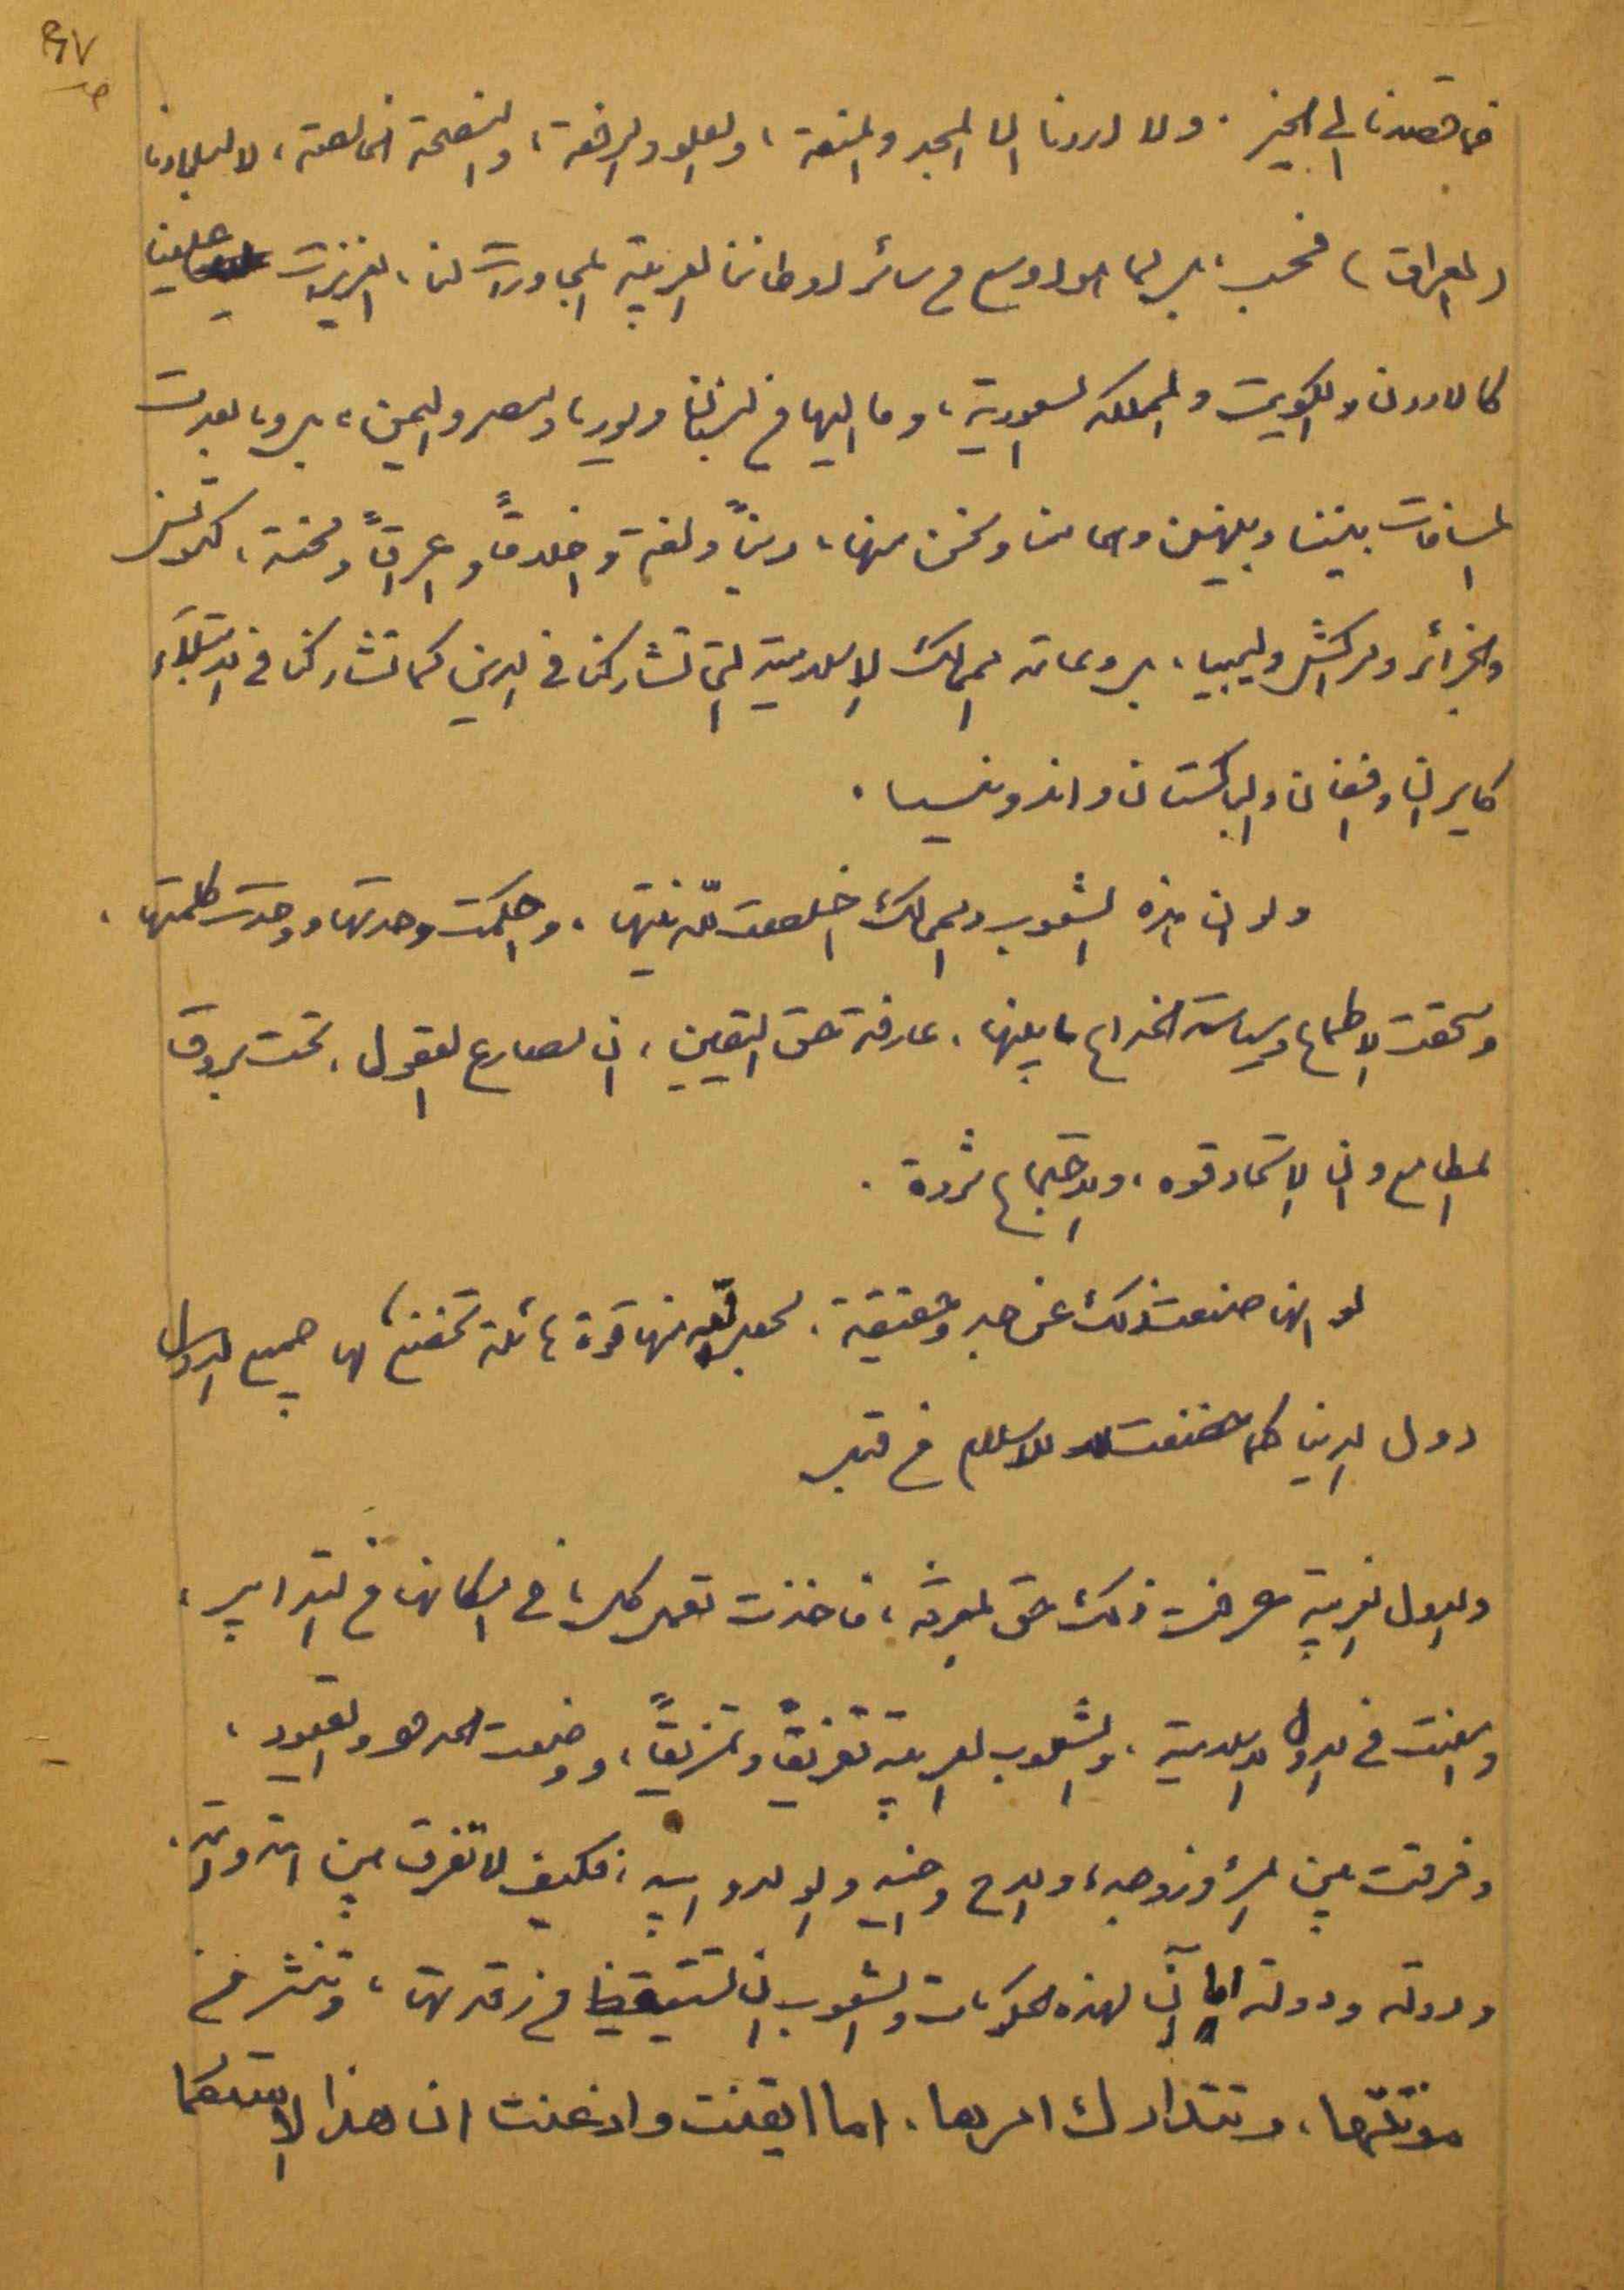 فما قصدنا الا الخير. ولا اردنا الا المجد والمنعة، والعلو والرفعة، والنصيحة الخالصة، لا لبلادنا
(العراق) فحسب، بل لما هو اوسع من سائر اوطاننا العربية المجاورات لنا، العزيزات علينا
كالاردن والكويت والمملكة السعودية، وما اليها من لبنان وسوريا، ومصر واليمن، بل وما بعدت
المسافات بيننا وبينهن وهي منا ونحن منها، ديناً ولغة واخلاقاً واعراقاً ومحنة، كتونس
والجزائر ومراكش وليبيا، بل وعامة الممالك الاسلامية التي تشاركنا في الدين كما تشاركنا في الابتلاء
كايران وافغان والباكستان واندونيسيا.
ولو ان هذه الشعوب والممالك اخلصت لله نيتها، واحكمت وحدتها ووحدت كلمتها،
وسحقت الاطماع وسياسة الخداع ما بينها، عارفة حق اليقين، ان مصارع العقول، تحت بروق
المطامع وان الاتحاد قوة، والاجتماع ثروة.
لو انها صنعت ذلك عن جد وحقيقة، لجعل الله منها قوة هائلة تخضع لها جميع الدول
دول الدنيا كما خضعت للاسلام من قبل
والدول الغربية عرفت ذلك حق المعرفة، فاخذت تعمل كل ما في امكانها من التدابير،
وامعنت في الدول الاسلامية، والشعوب العربية تفريقاً وتمزيقاً، ووضعت الحدود والقيود،
وفرقت بين المرء وزوجه، والاخ واخيه والولد وابيه، فكيف لا تفرق بين امة وامة،
ودولة ودولة اما آن لهذه الحكومات والشعوب ان تستيقظ من رقدتها، وتنشر من
موتتها، وتتدارك امرها. اما ايقنت واذعنت ان هذا الاستعمار